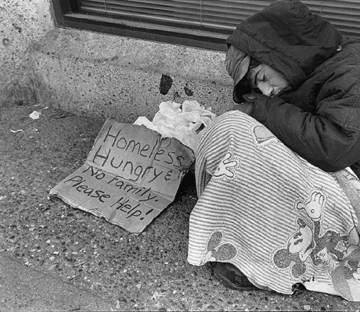 Homeless,
Hungry &
No Family.
Please Help!